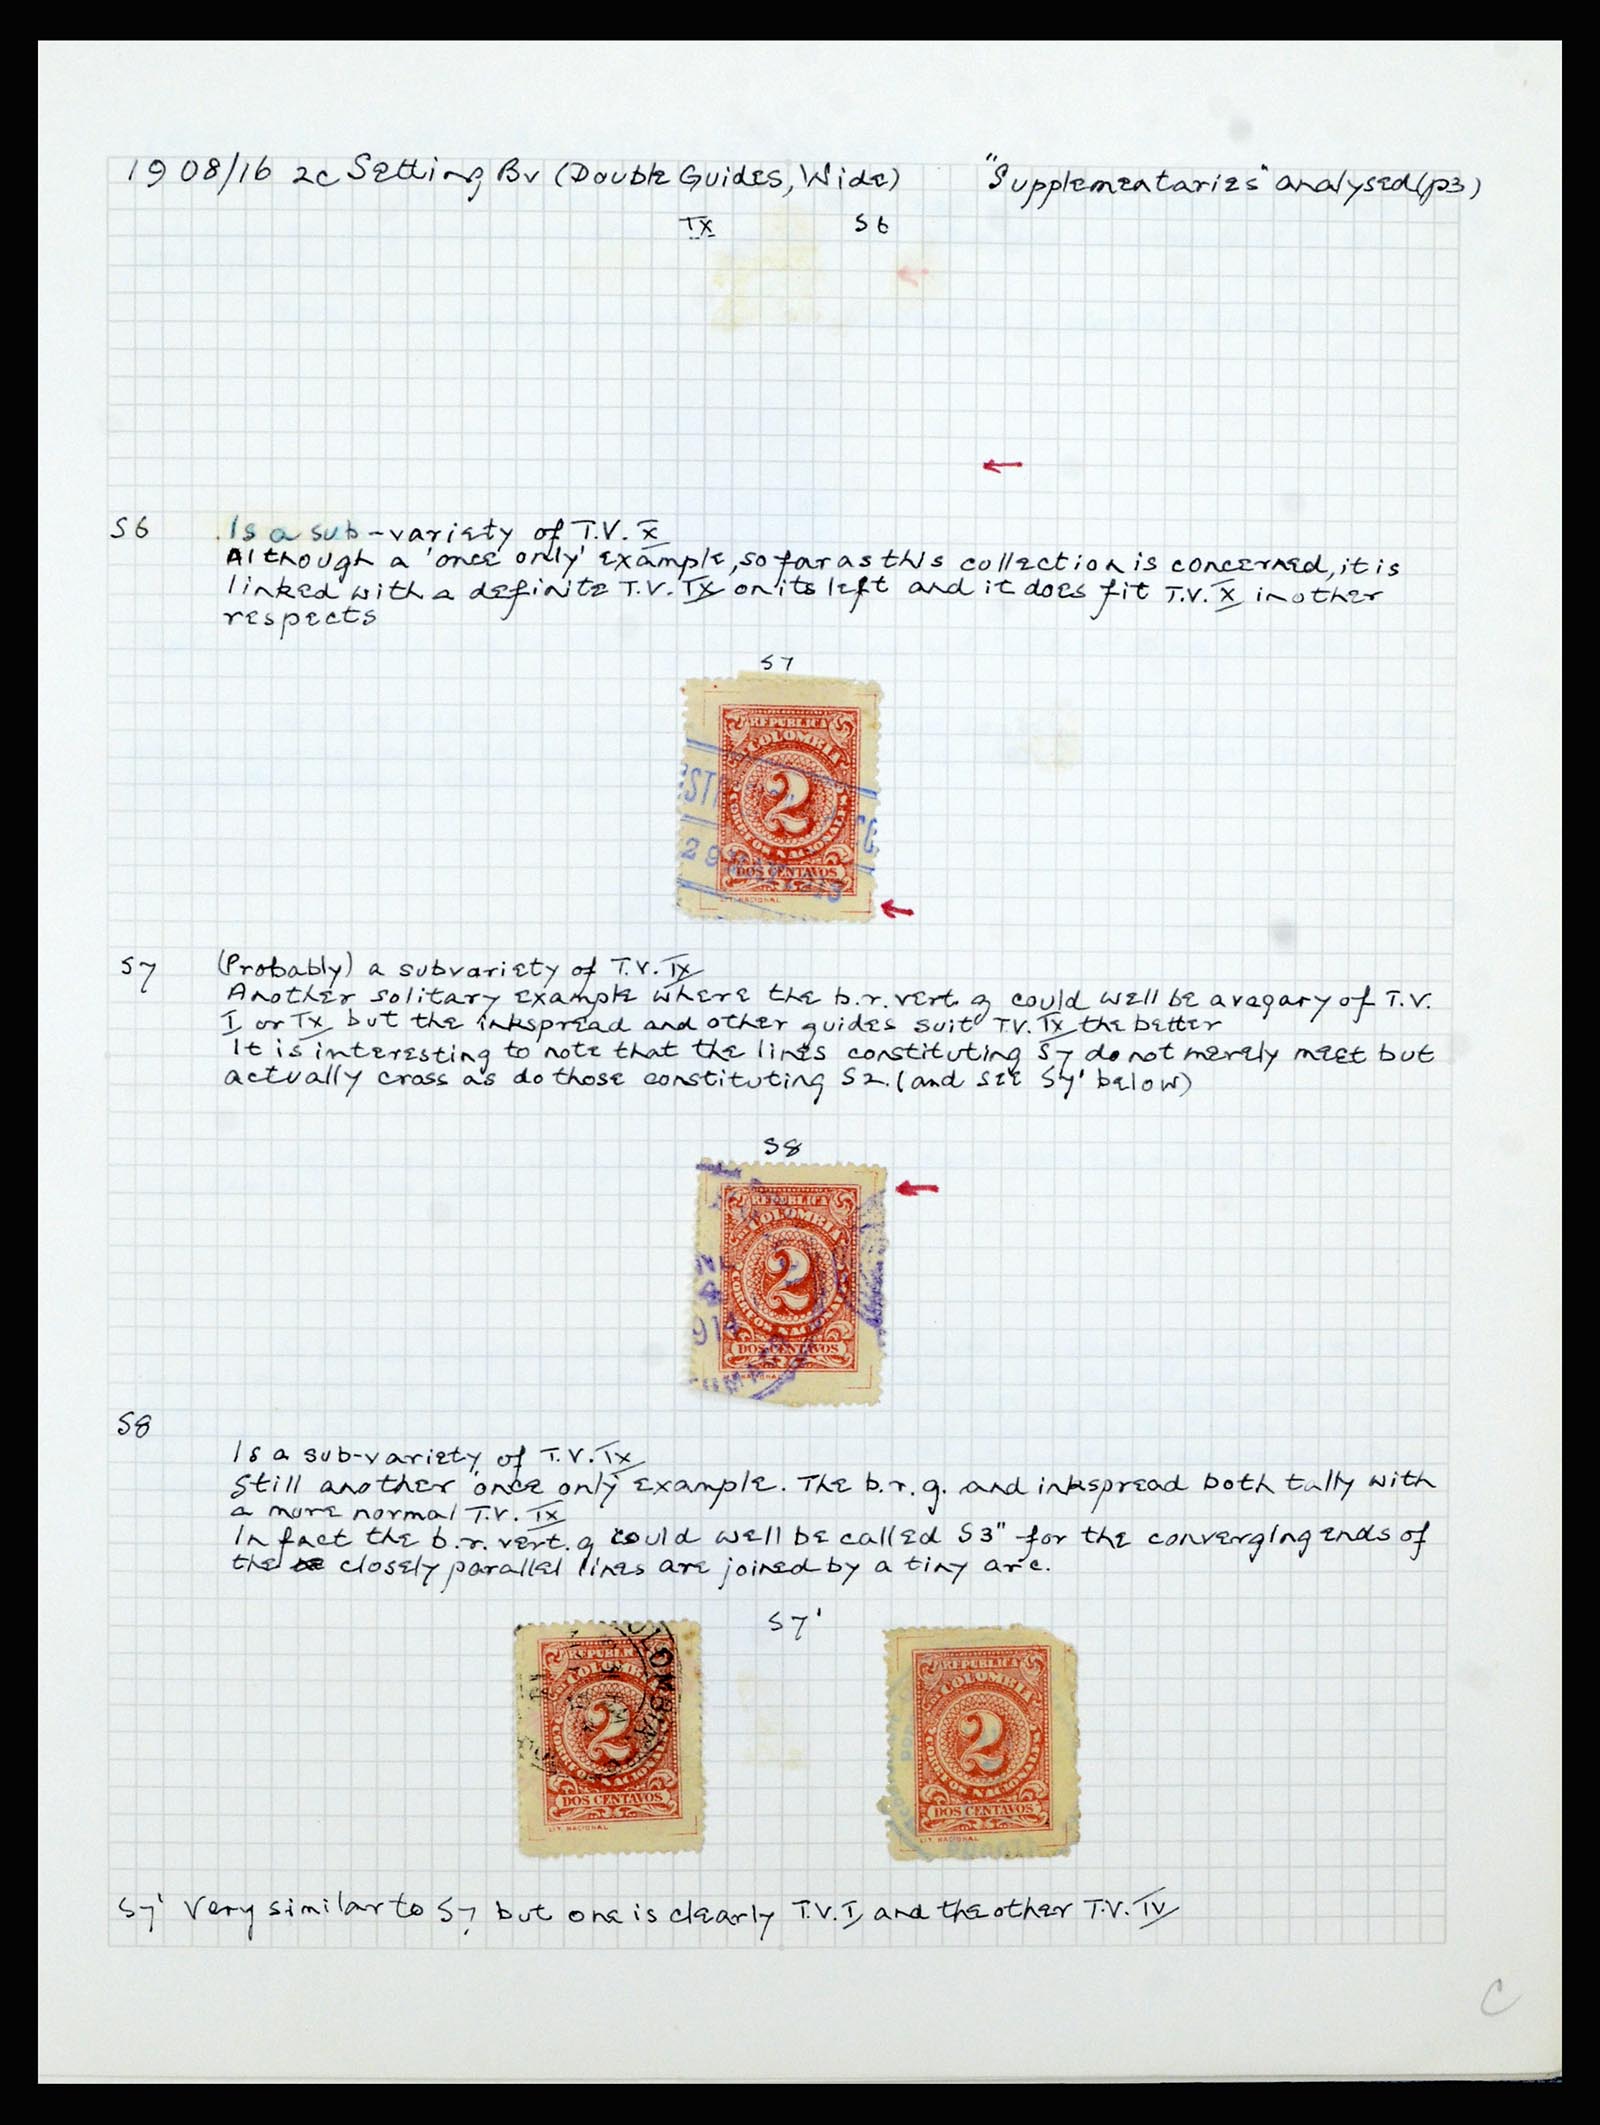 1908/16 2c Setting Bv (Double Guides, Wide) "Supplementaries" analysed (p3)
IX S6
S6 Is a sub-variety of T.V. X
Although a 'once only' example, so far as this collection is concerned, it is
linked with a definite T.V. IX on its left and it does fit T.V. X in other
respects
S7
REPUBLICA
COLOMBIA
2
CORREOS NACIONALES
DOS CENTAVOS
LIT. NACIONAL
S7 (Probably) a subvariety of T.V. IX
Another solitary example where the b.r. vert. g could well be a vagary of T.V.
I or IX but the inkspread and other guides suit T.V. IX the better
It is interesting to note that the lines constituting S7 do not merely meet but
actually cross as do those constituting S2. (and see S7' below)
S8
REPUBLICA
COLOMBIA
2
CORREOS NACIONALES
DOS CENTAVOS
LIT. NACIONAL
S8
Is a sub-variety of T.V. IX
Still another 'once only' example. The b.r.g. and inkspread both tally with
a more normal T.V. IX
In fact the b.r. vert. g could well be called S3" for the converging ends of
the closely parallel lines are joined by a tiny arc.
S7'
REPUBLICA
COLOMBIA
2
CORREOS NACIONALES
DOS CENTAVOS
LIT. NACIONAL
REPUBLICA
COLOMBIA
2
CORREOS NACIONALES
DOS CENTAVOS
LIT. NACIONAL
S7' Very similar to S7 but one is clearly T.V. I and the other T.V. IV
C